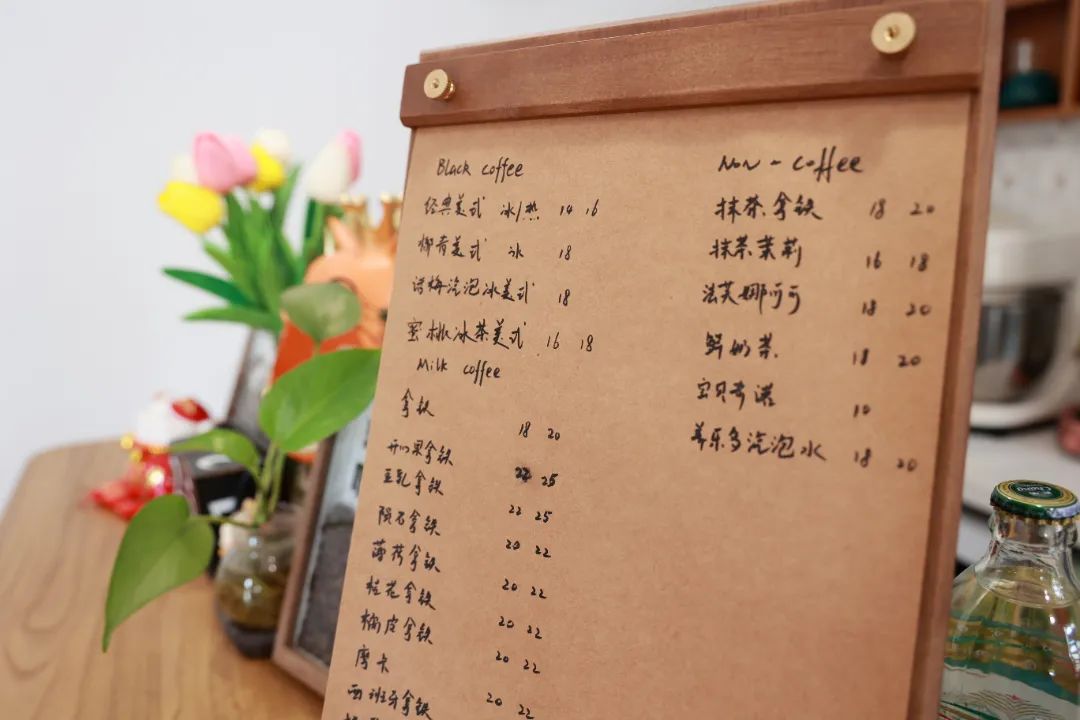 Black coffee
经典美式 冰/热 14 16
椰青美式 冰 18
话梅汽泡冰美式 18
蜜桃冰茶美式 16 18
Milk coffee
拿铁 18 20
开心果拿铁 22 25
豆乳拿铁 22 25
陨石拿铁 20 22
薄荷拿铁 20 22
桂花拿铁 20 22
橘皮拿铁 20 22
摩卡 20 22
西班牙拿铁
Non-coffee
抹茶拿铁 18 20
抹茶茉莉 16 18
法芙娜可可 18 20
鲜奶茶 18 20
宝贝奇诺 10
养乐多汽泡水 18 20
Chang